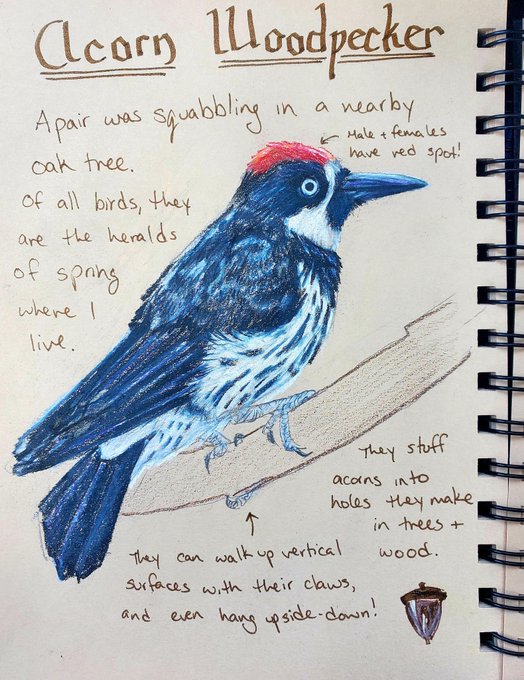 Acorn Woodpecker
A pair was squabbling in a nearby
oak tree.
Of all birds, they
are the heralds
of spring
where I
live.
Male + females
have red spot!
They stuff
acorns into
holes they make
in trees +
wood.
They can walk up vertical
surfaces with their claws,
and even hang upside-down!